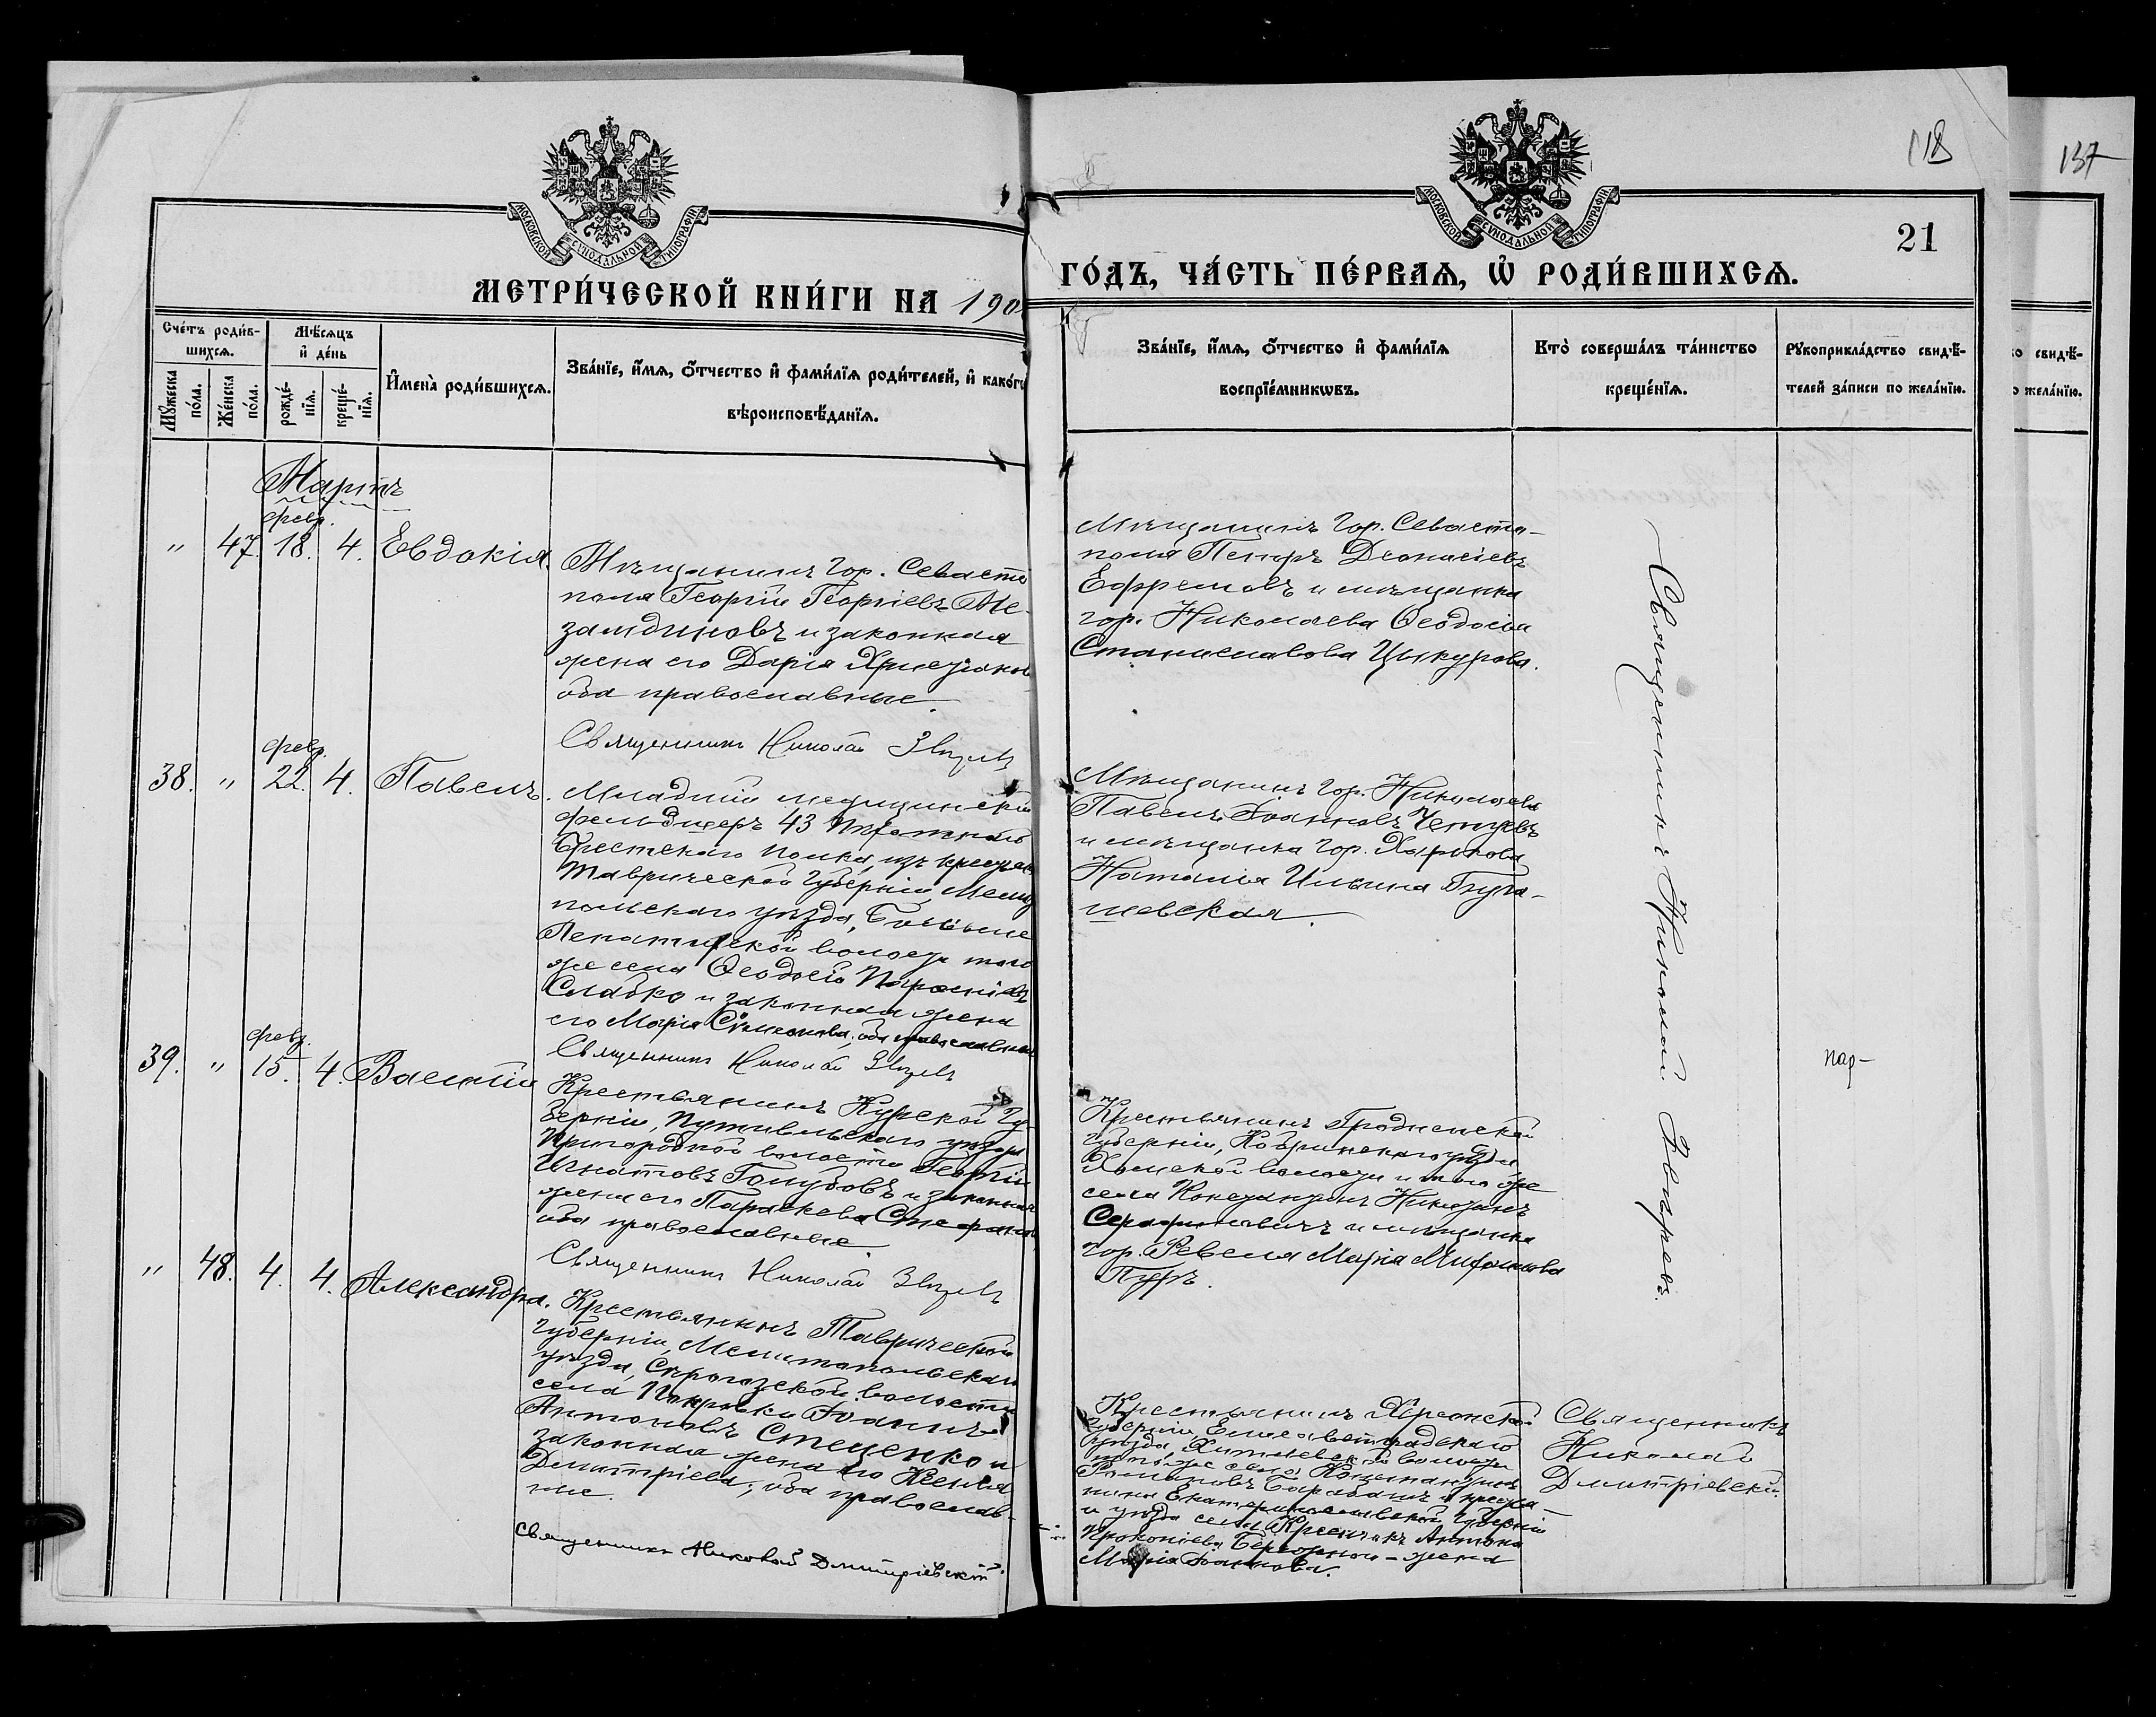 118
137
МОСКОВСКОЙ СѴНОДАЛЬНОЙ ТИПОГРАФІИ
МОСКОВСКОЙ СѴНОДАЛЬНОЙ ТИПОГРАФІИ
21
МЕТРИ́ЧЕСКОЙ КНИ́ГИ НА 190
ГО́ДЪ, ЧА́СТЬ ПЕ́РВАѦ, Ѡ҆ РОДИ́ВШИХСѦ.
Сче́тъ роди́в-
шихсѧ.
Мꙋжеска по́ла.
Же́нска по́ла.
Мѣ́сяцъ
и҆ де́нь
рожде́-
нїѧ.
креще́-
нїѧ.
И҆мена̀ роди́вшихсѧ.
Зва́нїе, и҆́мѧ, ѻ҆́тчество и҆ фами́лїѧ роди́телей, и҆ како́гѡ
вѣроисповѣ́данїѧ.
Зва́нїе, и҆́мѧ, ѻ҆́тчество и҆ фами́лїѧ
воспрїе́мникѡвъ.
Кто̀ соверша́лъ та́инство
креще́нїѧ.
Рꙋкоприкла́дство свидѣ́-
телей за́писи по жела́нїю.
о свидѣ́-
о жела́нїю.
Мартъ
февр.
" 47. 18. 4. Евдокія.
Мѣщанинъ гор. Севасто
поля Георгій Георгіевъ Ме-
замдиновъ и законная
жена его Дарія
оба православные.
Священникъ Николай Звѣревъ
Мѣщанинъ гор. Севасто-
поля Петръ Діонисіевъ
Ефремовъ и мѣщанка
гор. Николаева Ѳеодосія
Станиславова Цыкурова.
февр.
38. " 22. 4. Павелъ.
Младшій медицинскій
фельдшеръ 43 пѣхотнаго
Брестскаго полка, изъ крестьян
Таврической губерніи, Мелито
польскаго уѣзда, Больше
Лепатихской волости того
же села Ѳеодосій
Слабко и законная жена
его Марія Сѵмеонова, оба православные
Священникъ Николай Звѣревъ
Мѣщанинъ гор. Николаева
Павелъ Іоанновъ
и мѣщанка гор. Харькова
Наталія Ильина Буга-
шевская.
февр.
39. " 15. 4. Василій
Крестьянинъ Курской гу-
берніи, Путивльскаго уѣзда
Пригородной волости Георгій
Игнатовъ Голубовъ и законная
жена его Параскева Стефанов
оба православные.
Священникъ Николай Звѣревъ
Крестьянинъ Гродненской
губерніи, Кобринскаго уѣзда
Хомской волости и того же
села Константинъ Никитинъ
Серафимовичъ и мѣщанка
гор. Ревеля Марія
Пуръ.
Священникъ Николай Звѣревъ.
" 48. 4. 4. Александра.
Крестьянинъ Таврической
губерніи, Мелитопольскаго
уѣзда, Сѣрогозской волости
села Покровки Іоаннъ
Антоновъ Стеценко и
законная жена его Ксенія
Димитріева; оба православ-
ные.
Священникъ Николай Дмитріевскій.
Крестьянинъ Херсонской
губерніи, Елисаветградскаго
уѣзда, волости
того же села Константинъ
Романовъ Барабашъ и крестья-
нина Екатеринославской губерніи
и уѣзда села Антона
Прокопіева жена
Марія Іоаннова.
Священникъ
Николай
Дмитріевскій.